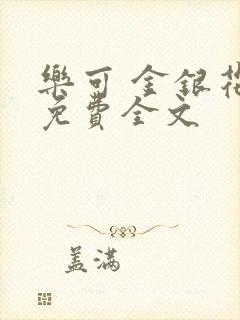 樂可 金銀花
免費全文
盖满